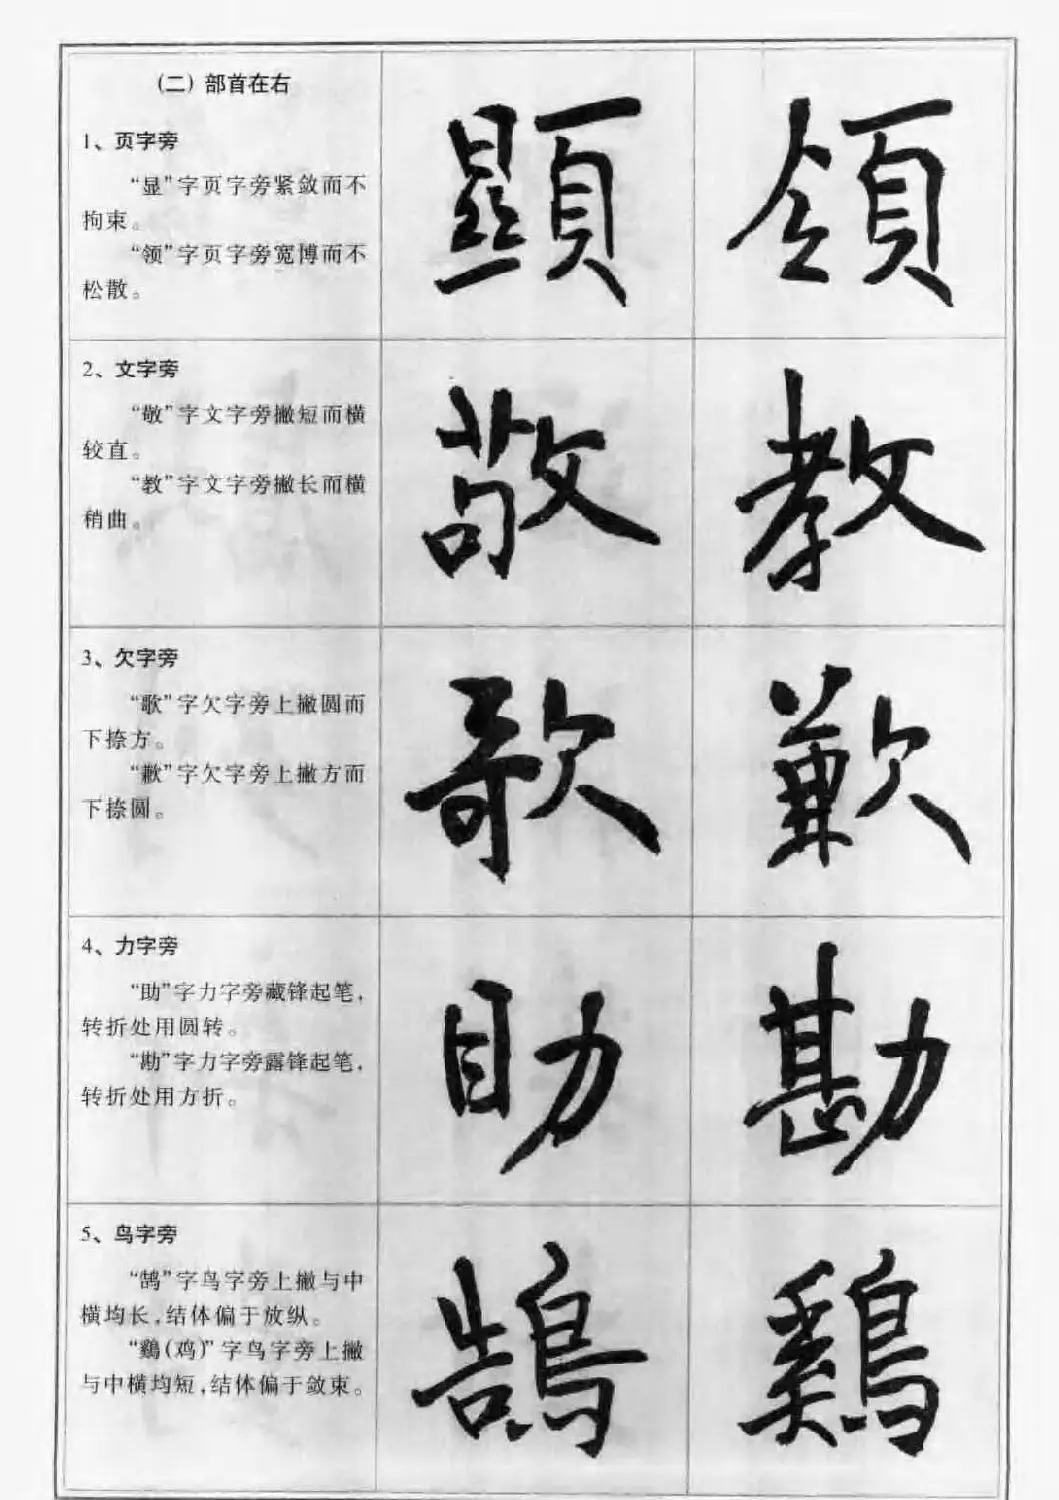 （二）部首在右
1、页字旁
“显”字页字旁紧敛而不
拘束。
“领”字页字旁宽博而不
松散。
顯 領
2、文字旁
“敬”字文字旁撇短而横
较直。
“教”字文字旁撇长而横
稍曲。
敬 教
3、欠字旁
“歌”字欠字旁上撇圆而
下捺方。
“歉”字欠字旁上撇方而
下捺圆。
歌 歉
4、力字旁
“助”字力字旁藏锋起笔，
转折处用圆转。
“勘”字力字旁露锋起笔，
转折处用方折。
助 勘
5、鸟字旁
“鹄”字鸟字旁上撇与中
横均长，结体偏于放纵。
“鷄（鸡）”字鸟字旁上撇
与中横均短，结体偏于敛束。
鵠 鷄